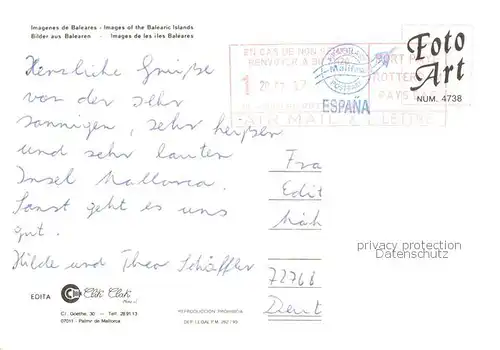 Imagenes de Baleares - Images of the Balearic Islands
Bilder aus Balearen - Images de les iles Baleares
Foto
Art
NUM. 4738
EN CAS DE NON
RENVOYER A
ROTTER
PAYS
1
ESPAÑA
AIR MAIL
Herzliche Grüße
von der sehr
sonnigen, sehr heißen
und sehr lauten
Insel Mallorca.
Sonst geht es uns
gut.
Hilde und Theo Schäffler
Fra
Edit
Näh
72768
Deut
privacy protection
Datenschutz
EDITA Clik Clak
C/. Goethe, 30 - Telf. 28 91 13
07011 - Palma de Mallorca
REPRODUCCION PROHIBIDA